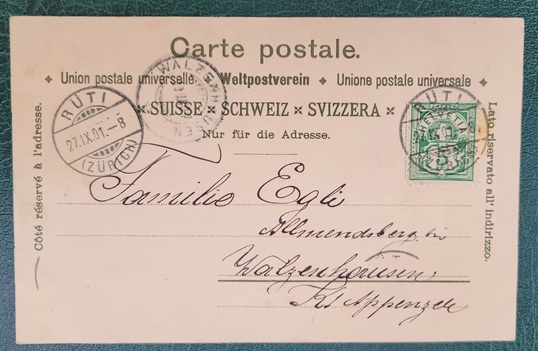 Carte postale.
Union postale universelle. Weltpostverein Unione postale universale
SUISSE SCHWEIZ SVIZZERA
Nur für die Adresse.
Côté réservé à l'adresse.
Lato riservato all' indirizzo.
RÜTI
27.IX.01.–8
(ZÜRICH)
WALZENHAUSEN
RÜTI
27.IX.01.
HELVETIA
5
Familie Egli
Allmendsberg bei
Walzenhausen,
Kt Appenzell